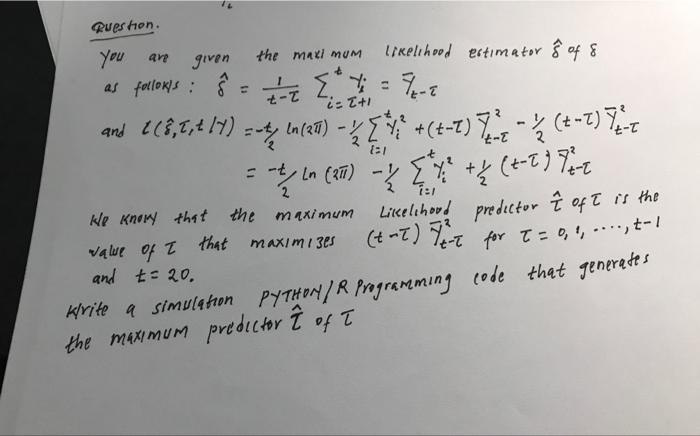 Question.
You are given the maximum likelihood estimator δ̂ of δ
as follows : δ̂ = 1/(t-τ) Σ_{i=τ+1}^{t} Y_i = Ȳ_{t-τ}
and ℓ(δ̂,τ,t/Y) = -t/2 ln(2π) - 1/2 Σ_{i=1}^{t} Y_i² + (t-τ) Ȳ²_{t-τ} - 1/2 (t-τ) Ȳ²_{t-τ}
= -t/2 ln (2π) - 1/2 Σ_{i=1}^{t} Y_i² + 1/2 (t-τ) Ȳ²_{t-τ}
We know that the maximum Likelihood predictor τ̂ of τ is the
value of τ that maximizes (t-τ) Ȳ²_{t-τ} for τ = 0, 1, ...., t-1
and t = 20.
Write a simulation PYTHON/R Programming code that generates
the maximum predictor τ̂ of τ